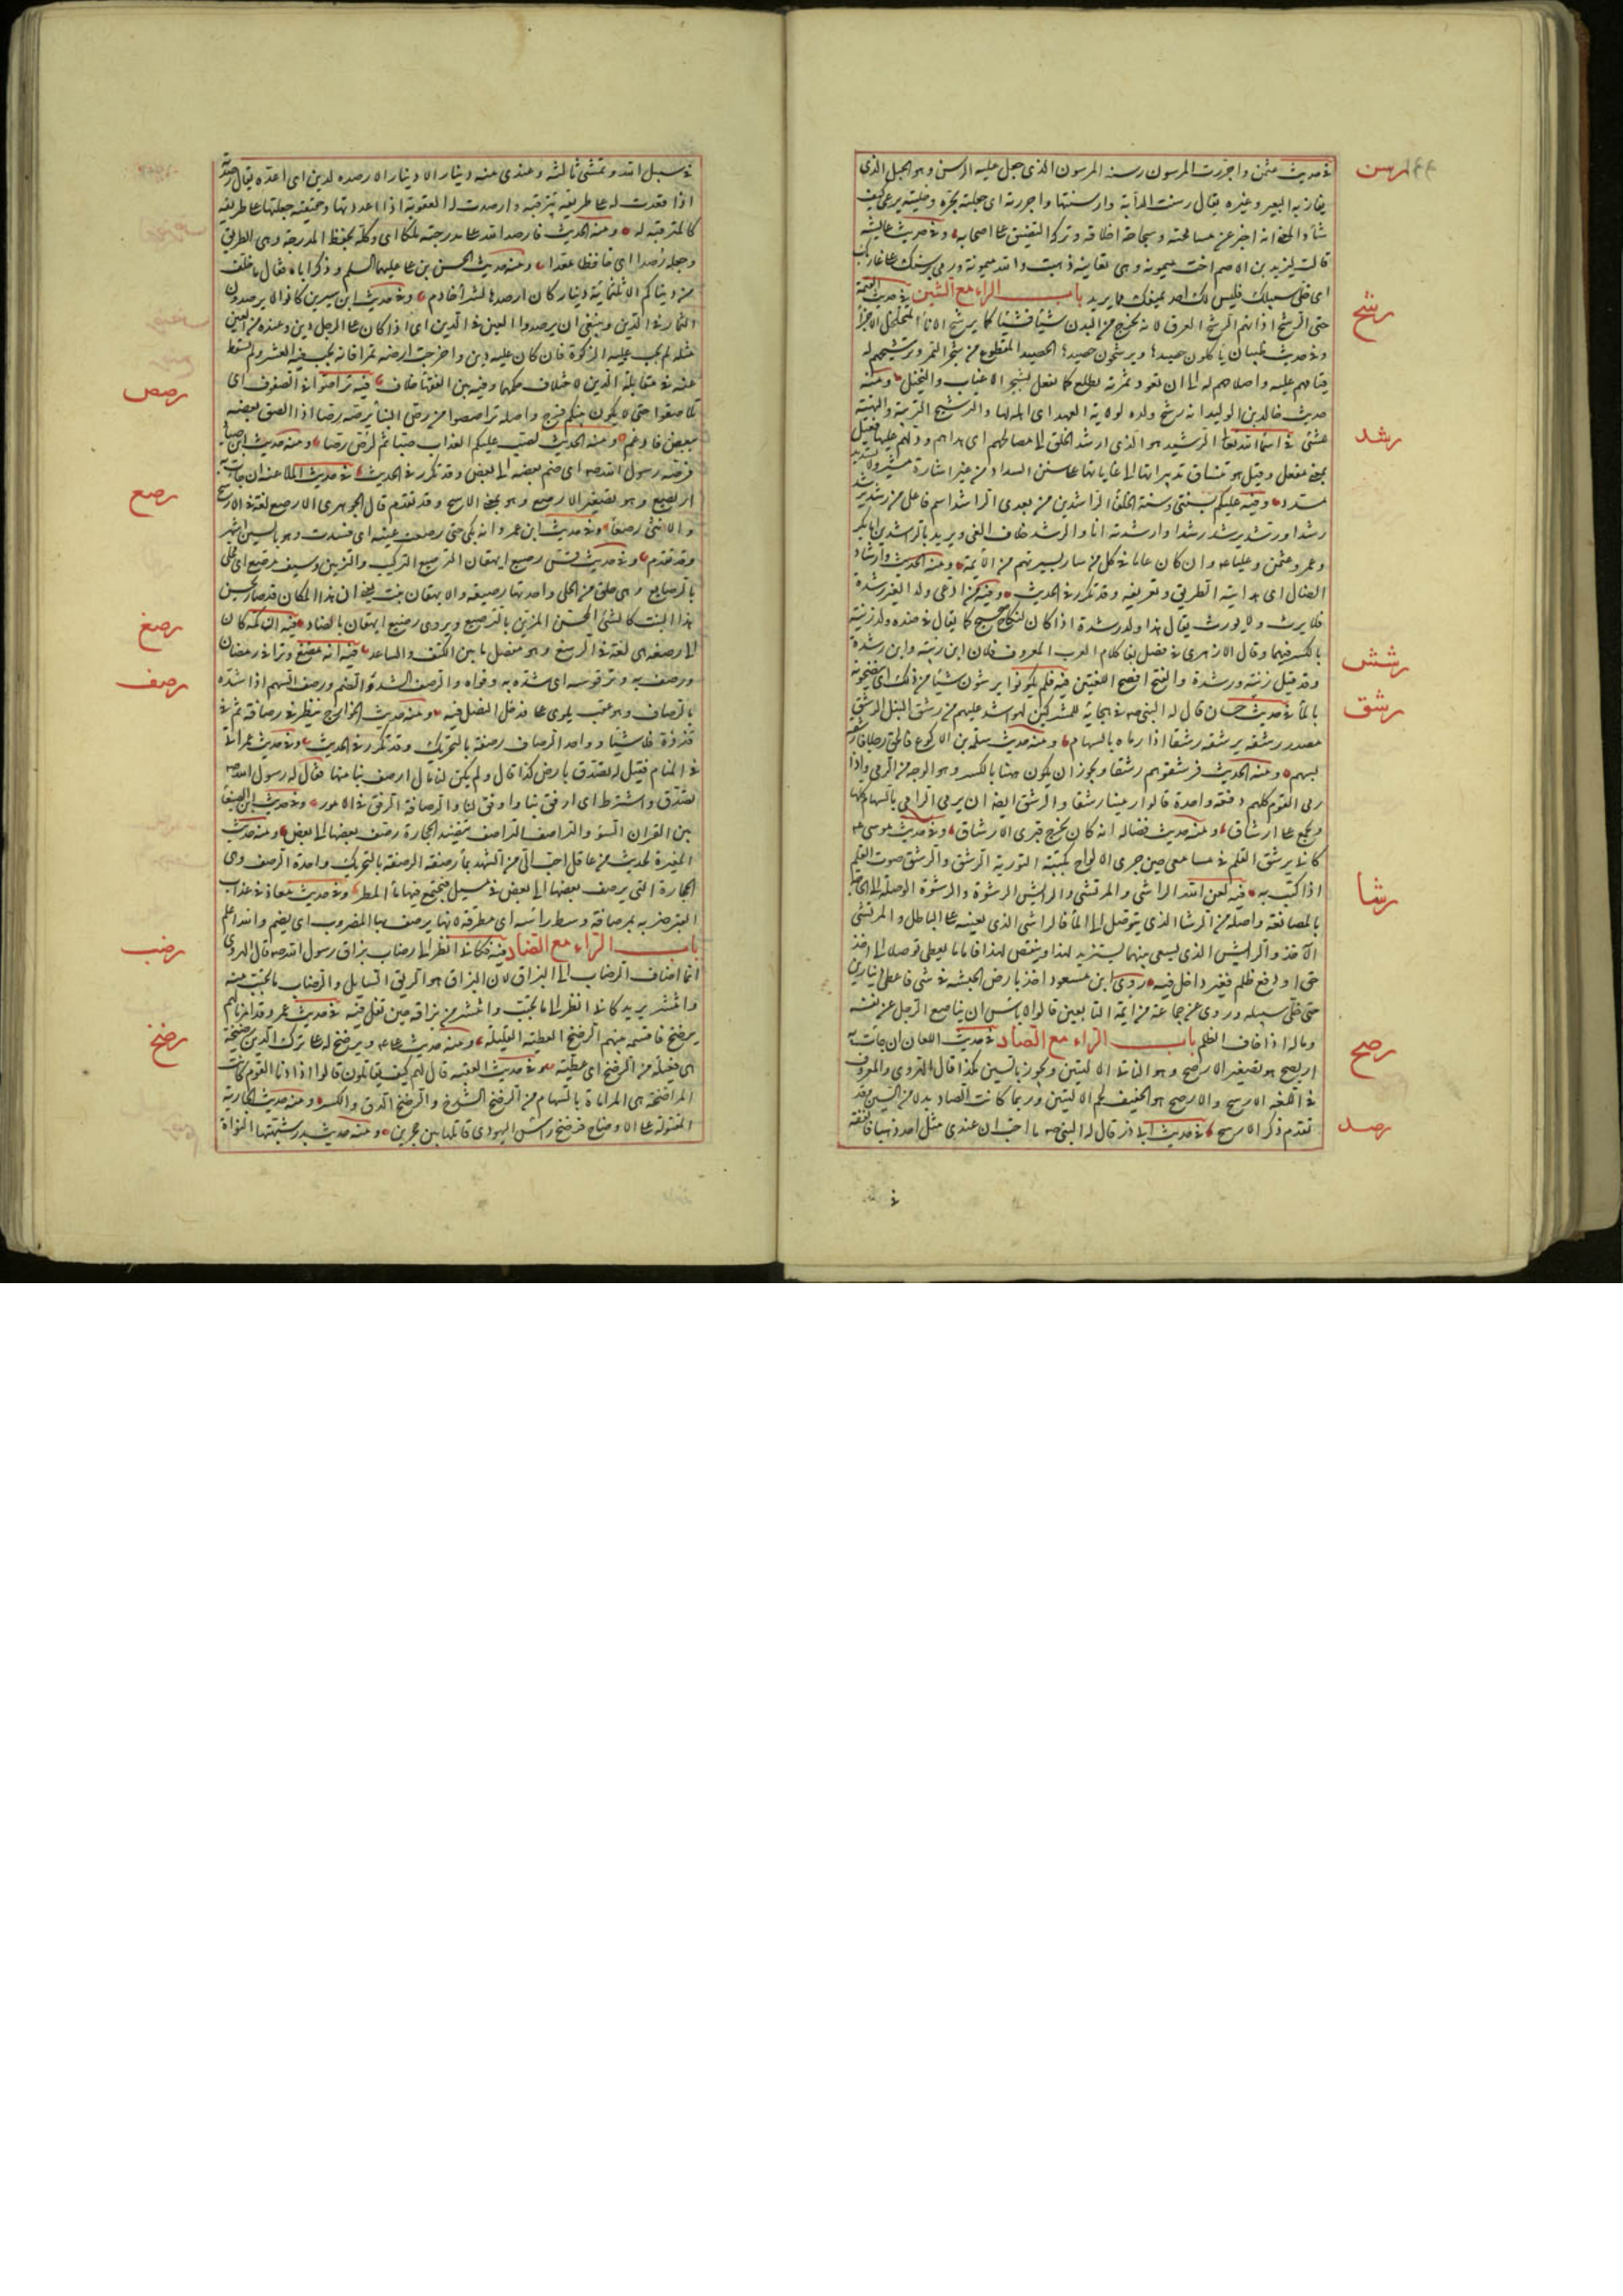 رسن
في حديث عثمن واجررت المرسون رسنه المرسون الذي جعل عليه الرسن وهو الحبل الذي
يقاد به البعير وغيره يقال رسنت الدابة وارسنتها واجررته اى جعلته يجره وخليته يرعى كيف
شاء والمعنى انه اخبر عن مسامحته وسجاحة اخلاقه وتركه التضييق على اصحابه وفى حديث عايشة
قالت ليزيد بن الاصم اخت ميمونة وهى تعاتبه ذهبت والله ميمونة ورمى برسنك على غاربك
اى خلى سبيلك فليس لك احد يمنعك مما تريد باب الراء مع الشين فى حديث القيمة
رشح
حتى الرشح اذانهم الرشح العرق لانه يخرج من البدن شيئا فشيئا كما يرشح الاناء المتخلخل الاجزاء
وفى حديث ظبيان ياكلون حصيدها ويرشحون خضيدها الخضيد المقطوع من شجر الثمر وترشيحهم له
قيامهم عليه واصلاحهم له الى ان تعود ثمرته تطلع كما يفعل بشجر الاعناب والنخيل ومنه
حديث خالد بن الوليد انه رشح ولده لولاية العهد اى اهله لها والترشيح التربية والتهيئة
رشد
للشئ فى اسماء الله تعالى الرشيد هو الذى ارشد الخلق الى مصالحهم اى هداهم ودلهم عليها فعيل
بمعنى مفعل وقيل هو تنساق تدبيراتها الى غاياتها على سنن السداد من غير اشارة مشير ولا تسديد
مسدد وفيه عليكم بسنتى وسنة الخلفاء الراشدين من بعدى الراشد اسم فاعل من رشد يرشد
رشدا ورشد يرشد رشدا وارشدته انا والرشد خلاف الغى ويريد بالراشدين ابا بكر
وعمر وعثمن وعليا وان كان عاما فى كل من سار بسيرتهم من الائمة ومنه الحديث وارشاد
الضال اى هدايته الطريق وتعريفه وقد تكرر فى الحديث وفيه من ادعى ولدا لغير رشدة
فلا يرث ولا يورث يقال هذا ولد رشدة اذا كان لنكاح صحيح كما يقال فى ضده ولد زنية
بالكسر فيهما وقال الازهرى فى فصل بغى كلام العرب المعروف فلان ابن زنية وابن رشدة
رشش
وقد قيل زنية ورشدة والفتح افصح اللغتين فيه فلم يكونوا يرشون شيئا من ذلك اى ينضحونه
رشق
بالماء فى حديث حسان قال له النبى صه فى هجائه للمشركين لهو اشد عليهم من رشق النبل الرشق
مصدر رشقه يرشقه رشقا اذا رماه بالسهام ومنه حديث سلمة بن الاكوع فالحق رجلا فارشقه
بسهم ومنه الحديث فرشقوهم رشقا ويجوز ان يكون ههنا بالكسر وهو الوجه من الرمى واذا
رمى القوم كلهم دفعة واحدة قالوا رمينا رشقا والرشق ايضا ان يرمى الرامى بالسهام كلها
ويجمع على ارشاق ومنه حديث فضالة انه كان يخرج فيرمى الارشاق وفى حديث موسى عه
كانى برشق القلم فى مسامعى حين جرى الالواح بكتبته التورية الرشق والرشق صوت القلم
رشا
اذا كتب به فيه لعن الله الراشى والمرتشى والرايش الرشوة والرشوة الوصلة الى الحاجة
بالمصانعة واصله من الرشا الذى يتوصل به الى الماء فالراشى الذى يعينه على الباطل والمرتشى
الآخذ والرايش الذى يسعى بينهما يستزيد لهذا ويستنقص لهذا فاما ما يعطى توصلا الى اخذ
حق او دفع ظلم فغير داخل فيه روى ابن مسعود اخذ بارض الحبشة فى شئ فاعطى دينارين
حتى خلى سبيله وروى عن جماعة من ائمة التابعين قالوا لا باس ان يصانع الرجل عن نفسه
رصح
وماله اذا خاف الظلم باب الراء مع الصاد فى حديث اللعان ان جاءت به
اريصح هو تصغير الارصح وهو الناتئ الاليتين ويجوز بالسين هكذا قال الهروى والمعروف
فى اللغة الارسح والارصح هو الخفيف لحم الاليتين وربما كانت الصاد بدلا من السين وقد
رصد
تقدم ذكر الارسح فى حديث ابى ذر قال له النبى صه ما احب ان عندى مثل احد ذهبا فانفقه
فى
فى سبيل الله وتمسى ثالثة وعندى منه دينار الا دينارا ارصده لدين اى اعده يقال رصدته
اذا قعدت له على طريقه تترقبه وارصدت له العقوبة اذا اعددتها وحقيقته جعلتها على طريقه
كالمترقبة له ومنه الحديث فارصد الله على مدرجته ملكا اى وكله بحفظ المدرجة وهى الطريق
وجعله رصدا اى حافظا معدا ومنه حديث الحسن بن على عليهما السلم وذكر اباه فقال ما خلف
من دنياكم الا ثلثمائة دينار كان ارصدها لشراء خادم وفى حديث ابن سيرين كانوا لا يرصدون
الثمار فى الدين وينبغى ان يرصدوا العين فى الدين اى اذا كان على الرجل دين وعنده من العين
مثله لم يجب عليه الزكوة فان كان عليه دين واخرجت ارضه ثمرا فانه يجب فيه العشر ولم يسقط
رصص
عنه فى مقابلة الدين لاختلاف حكمهما وفيه بين الفقهاء خلاف فيه تراصوا فى الصفوف اى
تلاصقوا حتى لا يكون بينكم فرج واصله تراصصوا من رص البناء يرصه رصا اذا الصق بعضه
ببعض فادغم ومنه الحديث لصب عليكم العذاب صبا ثم لرص رصا ومنه حديث ابن صياد
فرصه رسول الله صه اى ضم بعضه الى بعض وقد تكرر فى الحديث فى حديث الملاعنه ان جاءت به
رصع
اريصع وهو تصغير الارصع وهو بمعنى الارسح وقد تقدم قال الجوهرى الارصع لغة فى الارسح
والانثى رصعا وفى حديث ابن عمرو انه بكى حتى رصعت عينه اى فسدت وهو بالسين اشهر
وقد تقدم وفى حديث قس رصيع ايهقان الترصيع التركيب والتزيين وسيف مرصع اى محلى
بالرصايع وهى حلق من الحلى واحدتها رصيعة والايهقان نبت يعنى ان هذا المكان قد صار بحسن
رصغ
هذا النبت كالشئ المحسن المزين بالترصيع ويروى رضيع ايهقان بالضاد فيه ان كمه كان
الى رصغه هى لغة فى الرسغ وهو مفصل ما بين الكتف والساعد
رصف
فيه انه مضغ وترا فى رمضان
ورصف به وتر قوسه اى شده به وقواه والرصف الشد والضم ورصف السهم اذا شده
بالرصاف وهو عقب يلوى على مدخل النصل فيه ومنه حديث الخوارج ينظر فى رصافه ثم فى
قذذه فلا شيئا وواحد الرصاف رصفة بالتحريك وقد تكرر فى الحديث وفى حديث عمر اتى
فى المنام فقيل له تصدق بارض كذا قال ولم يكن لنا مال ارصف بنا منها فقال له رسول الله صه
تصدق واشترط اى ارفق بنا واوفق لنا والرصافة الرفق فى الامور وفى حديث ابن الصبغاء
بين القران السوء والتراصف التراصف تنضيد الحجارة وصف بعضها الى بعض ومنه حديث
المغيرة لحديث من عاقل احب الى من الشهد بماء رصفة الرصفة بالتحريك واحدة الرصف وهى
الحجارة التى يرصف بعضها الى بعض فى مسيل فيجتمع فيها ماء المطر وفى حديث معاذ فى عذاب
القبر ضربه بمرصافة وسط راسه اى مطرقة لانها يرصف بها المضروب اى يضم والله اعلم
رضب
باب الراء مع الضاد فيه فكانى انظر الى رضاب بزاق رسول الله صه قال الهروى
انما اضاف الرضاب الى البزاق لان البزاق هو الريق السايل والرضاب ما تحبب منه
وانتشر يريد كانى انظر الى ما تحبب وانتشر من بزاقه حين تفل فيه
رضخ
فى حديث عمر وقد امرنا لهم
برضخ فاقسمه بينهم الرضخ العطية القليلة ومنه حديث على عه ويرضخ له على ترك الدين رضيخة
هى فعيلة من الرضخ اى عطية وفى حديث العقبة قال لهم كيف تقاتلون قالوا اذا دنا القوم كانت
المراضخة هى المراماة بالسهام من الرضخ الشدخ والرضخ الدق والكسر ومنه حديث الجارية
المقتولة على الاوضاح فرضخ راس اليهودى قاتلها بين حجرين ومنه حديث بدر شبهتها النواة